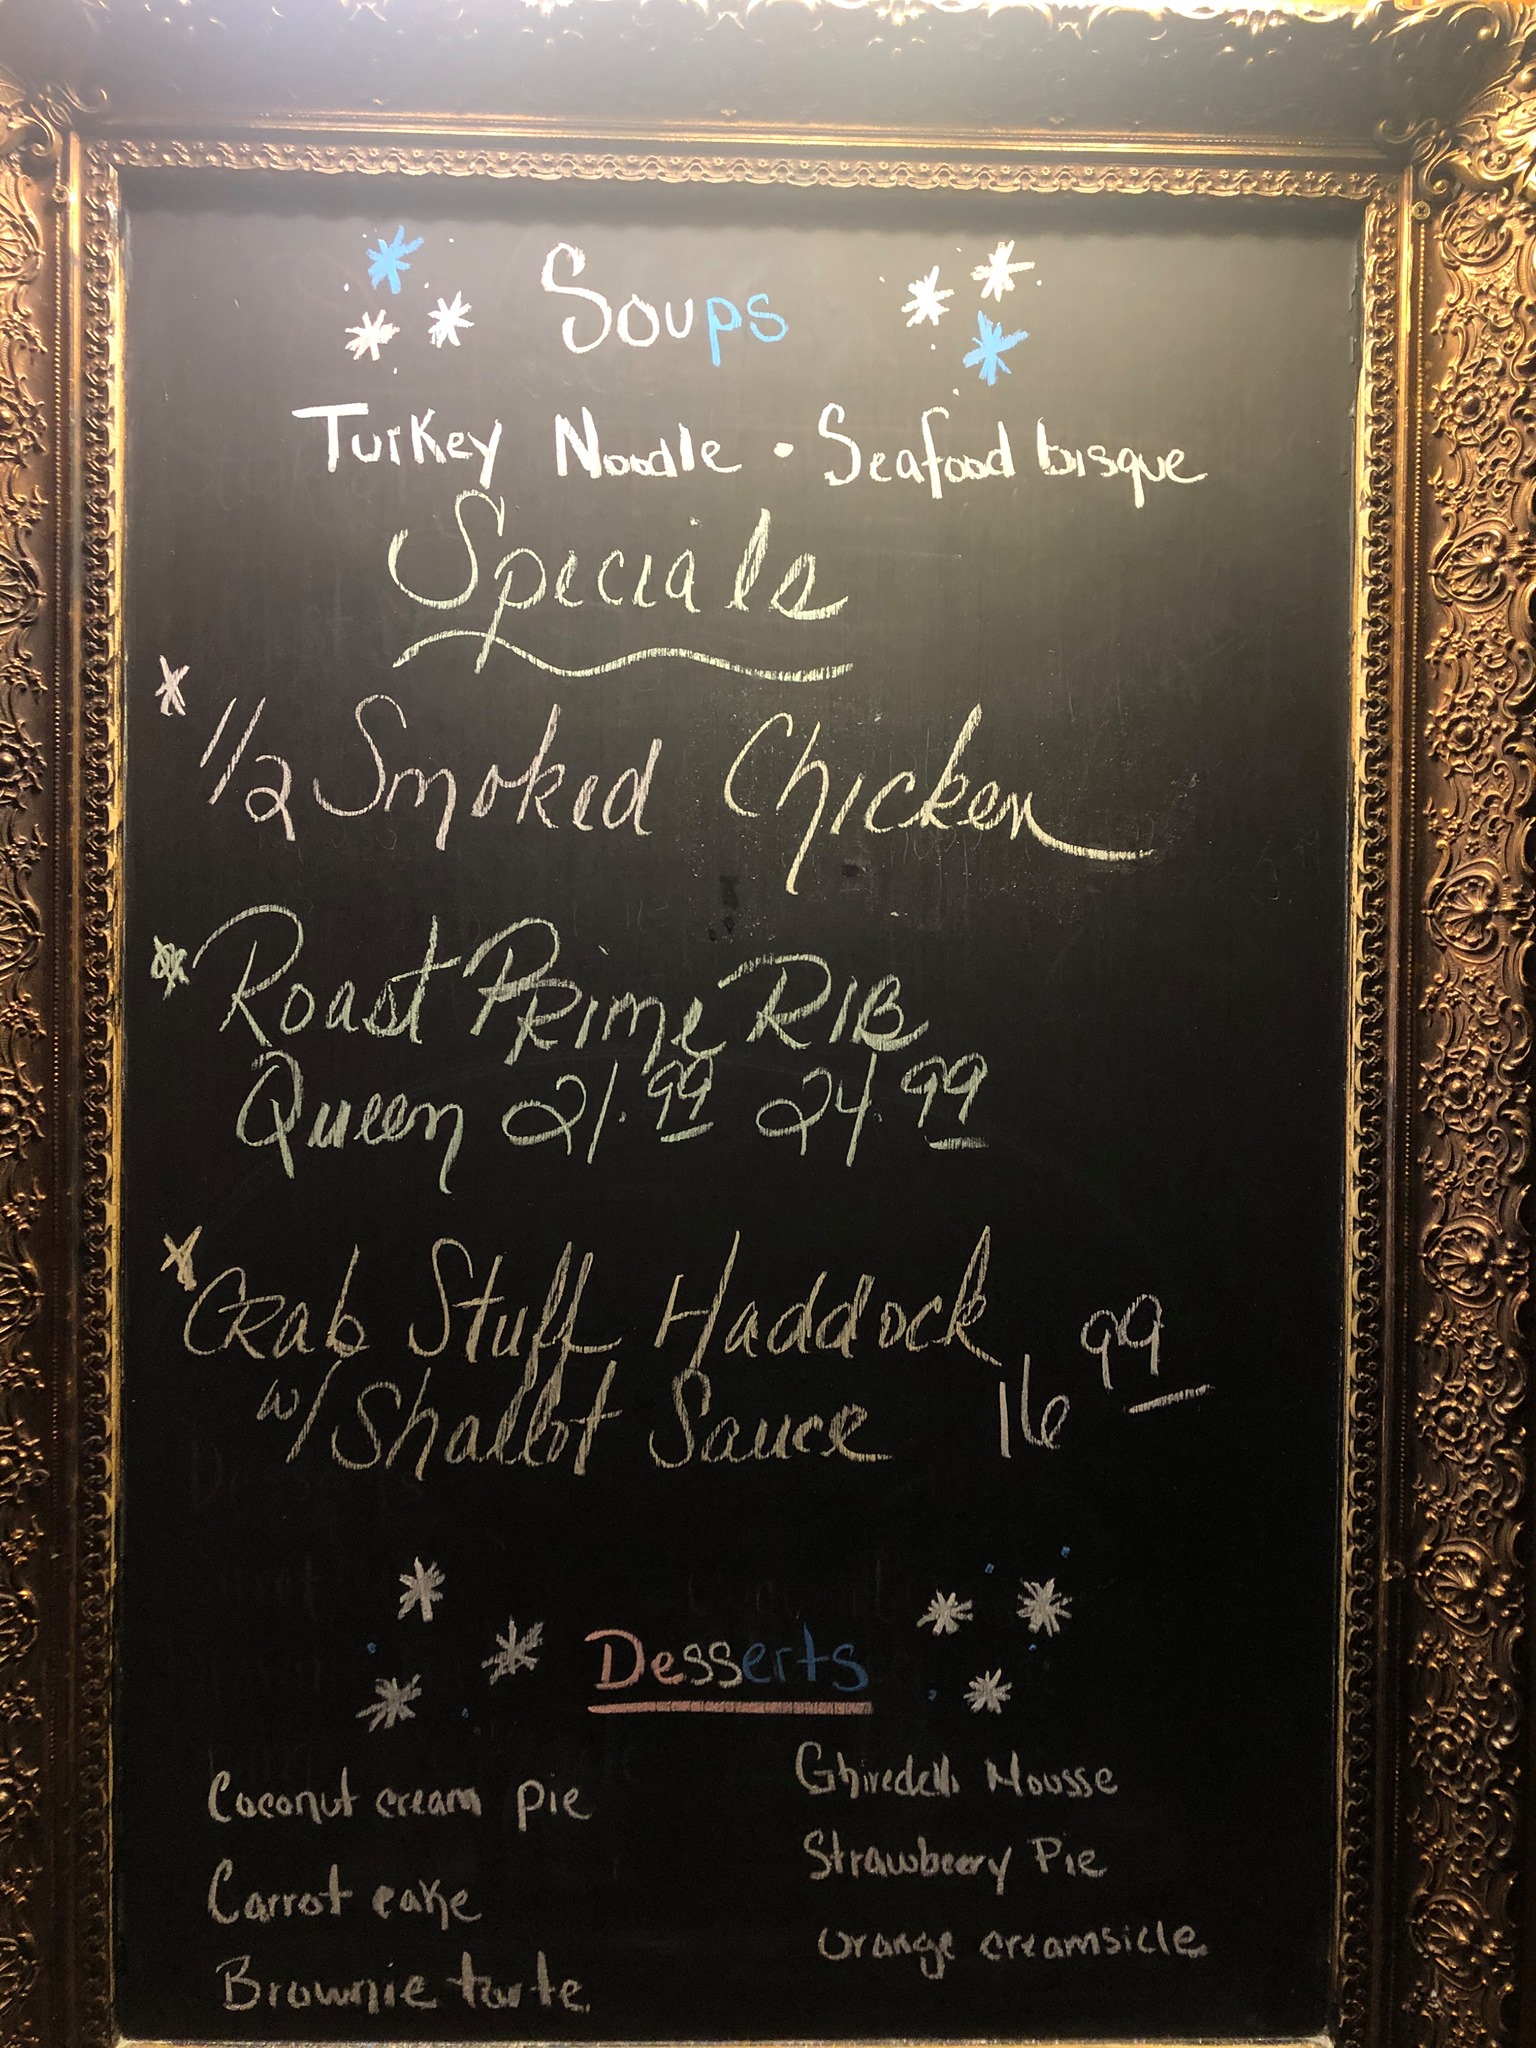 Soups
Turkey Noodle • Seafood bisque
Specials
* 1/2 Smoked Chicken
* Roast Prime Rib
Queen 21.99 24.99
* Crab Stuff Haddock
w/ Shallot Sauce 16 99
Desserts
Coconut cream pie
Carrot cake
Brownie torte
Ghiredelli Mousse
Strawbeery Pie
Orange creamsicle